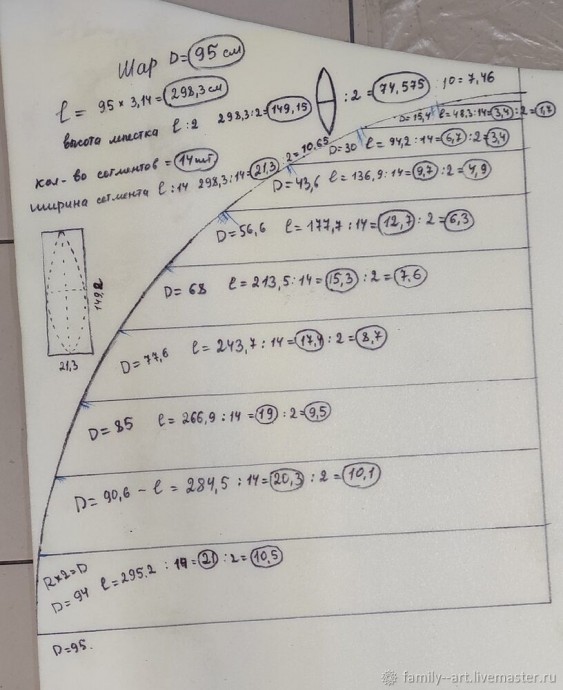 Шар D=95 см
l = 95 × 3,14=298,3 см
высота лепестка l:2 298,3:2=149,15 :2=74,575 :10=7,46
кол-во сегментов = 14 шт
ширина сегмента l:14 298,3:14=21,3 :2=10,65
D=15,4 l=48,3:14=3,4:2=1,7
D=30 l=94,2:14=6,7:2=3,4
D=43,6 l=136,9:14=9,7:2=4,9
D=56,6 l=177,7:14=12,7:2=6,3
149,2
21,3
D=68 l=213,5:14=15,3:2=7,6
D=77,6 l=243,7:14=17,4:2=8,7
D=85 l=266,9:14=19:2=9,5
D=90,6 – l=284,5:14=20,3:2=10,1
R×2=D
D=94 l=295.2:14=21:2=10,5
D=95.
family--art.livemaster.ru